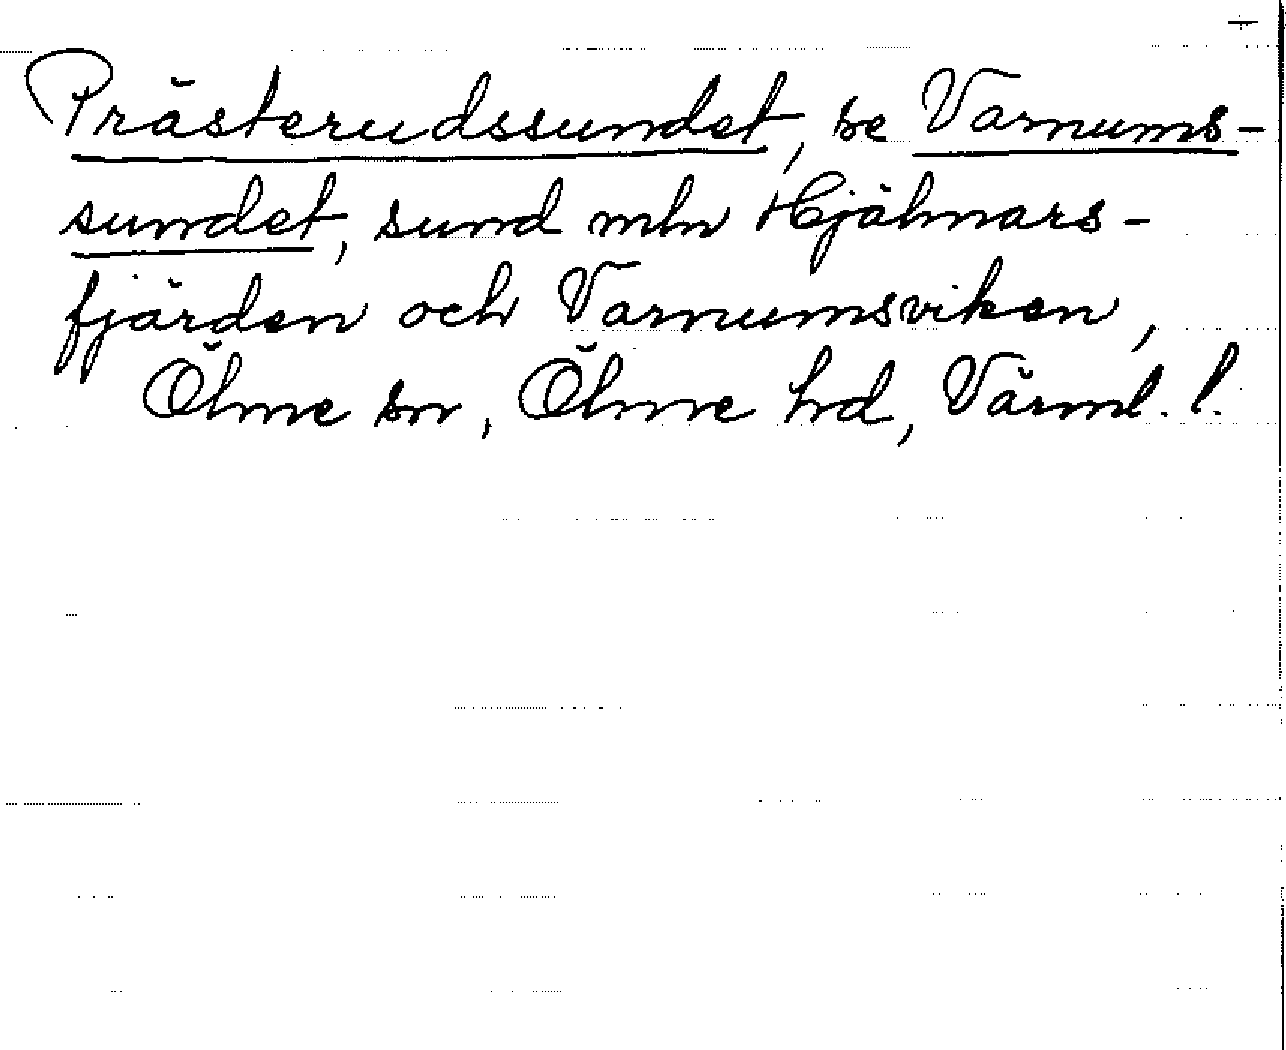 Prästerudssundet, se Varnums-
sundet, sund mln Hjälmars-
fjärden och Varnumsviken,
Ölme sn, Ölme hd, Värml. l.